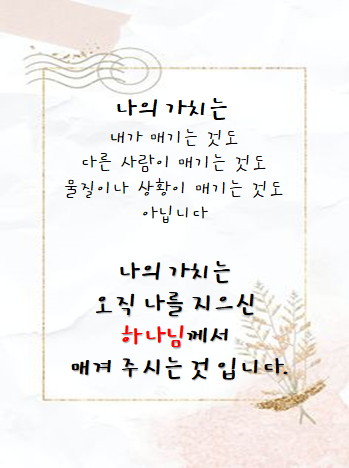 나의 가치는
내가 매기는 것도
다른 사람이 매기는 것도
물질이나 상황이 매기는 것도
아닙니다
나의 가치는
오직 나를 지으신
하나님께서
매겨 주시는 것 입니다.